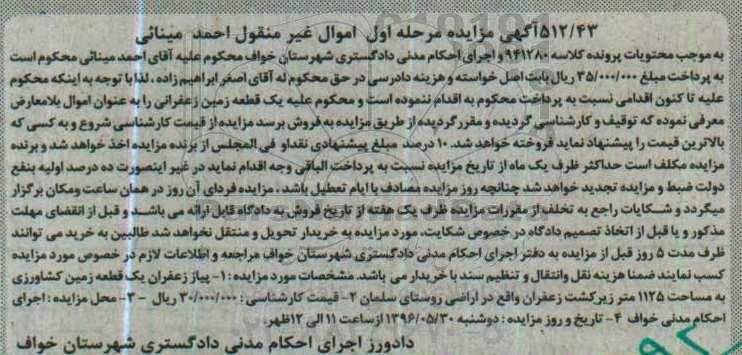 ۵۱۲/۴۳آگهی مزایده مرحله اول اموال غیر منقول احمد مینائی
به موجب محتویات پرونده کلاسه ۹۴۱۲۸۰ و اجرای احکام مدنی دادگستری شهرستان خواف محکوم علیه آقای احمد مینائی محکوم است
به پرداخت مبلغ ۳۵/۰۰۰/۰۰۰ ریال بابت اصل خواسته و هزینه دادرسی در حق محکوم له آقای اصغر ابراهیم زاده ، لذا با توجه به اینکه محکوم
علیه تا کنون اقدامی نسبت به پرداخت محکوم به اقدام ننموده است و محکوم علیه یک قطعه زمین زعفرانی را به عنوان اموال بلامعارض
معرفی نموده که توقیف و کارشناسی گردیده و مقرر گردیده از طریق مزایده به فروش برسد مزایده از قیمت کارشناسی شروع و به کسی که
بالاترین قیمت را پیشنهاد نماید فروخته خواهد شد. ۱۰ درصد مبلغ پیشنهادی نقداو فی المجلس از برنده مزایده اخذ خواهد شد و برنده
مزایده مکلف است حداکثر ظرف یک ماه از تاریخ مزایده نسبت به پرداخت الباقی وجه اقدام نماید در غیر اینصورت ده درصد اولیه بنفع
دولت ضبط و مزایده تجدید خواهد شد چنانچه روز مزایده مصادف با ایام تعطیل باشد ، مزایده فردای آن روز در همان ساعت ومکان برگزار
میگردد و شکایات راجع به تخلف از مقررات مزایده ظرف یک هفته از تاریخ فروش به دادگاه قابل ارائه می باشد و قبل از انقضای مهلت
مذکور و یا قبل از اتخاذ تصمیم دادگاه در خصوص شکایت، مورد مزایده به خریدار تحویل و منتقل نخواهد شد طالبین به خرید می توانند
ظرف مدت ۵ روز قبل از مزایده به دفتر اجرای احکام مدنی دادگستری شهرستان خواف مراجعه و اطلاعات لازم در خصوص مورد مزایده
کسب نمایند ضمنا هزینه نقل وانتقال و تنظیم سند با خریدار می باشد. مشخصات مورد مزایده : ۱- پیاز زعفران یک قطعه زمین کشاورزی
به مساحت ۱۱۲۵ متر زیرکشت زعفران واقع در اراضی روستای سلمان ۲- قیمت کارشناسی : ۳۰/۰۰۰/۰۰۰ ریال - ۳- محل مزایده : اجرای
احکام مدنی خواف ۴- تاریخ و روز مزایده : دوشنبه ۱۳۹۶/۰۵/۳۰ ازساعت ۱۱ الی ۱۲ظهر.
دادورز اجرای احکام مدنی دادگستری شهرستان خواف